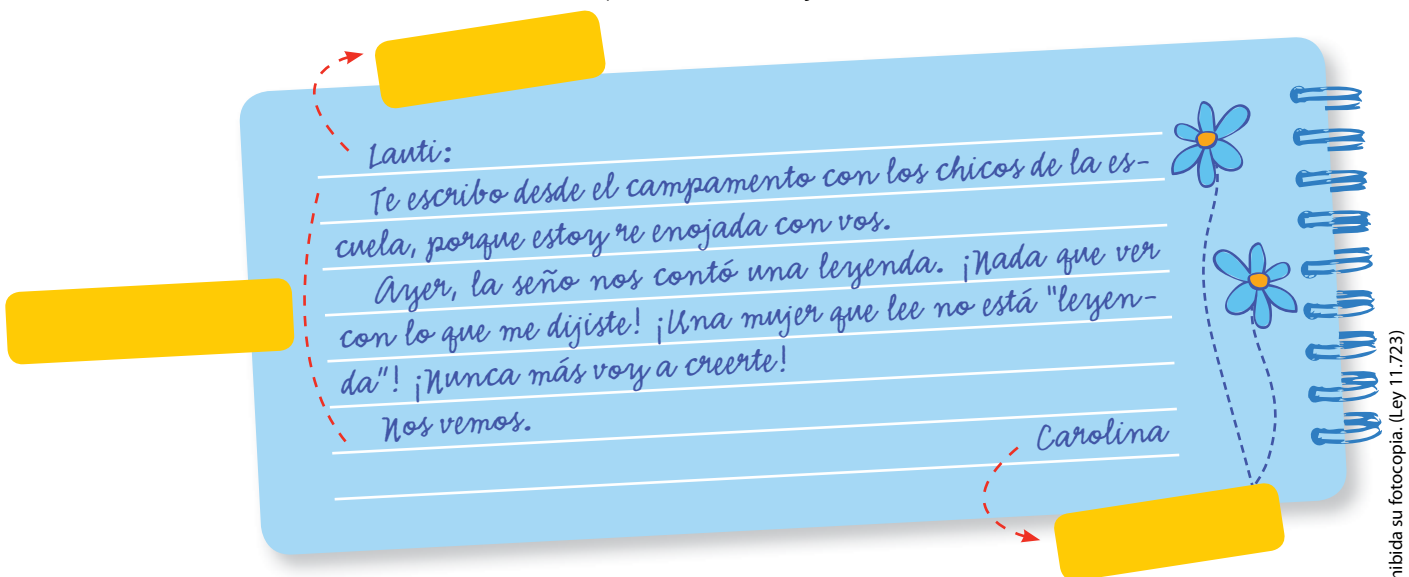 Lauti:
Te escribo desde el campamento con los chicos de la es-
cuela, porque estoy re enojada con vos.
Ayer, la seño nos contó una leyenda. ¡Nada que ver
con lo que me dijiste! ¡Una mujer que lee no está "leyen-
da"! ¡Nunca más voy a creerte!
Nos vemos.
Carolina
su fotocopia. (Ley 11.723)